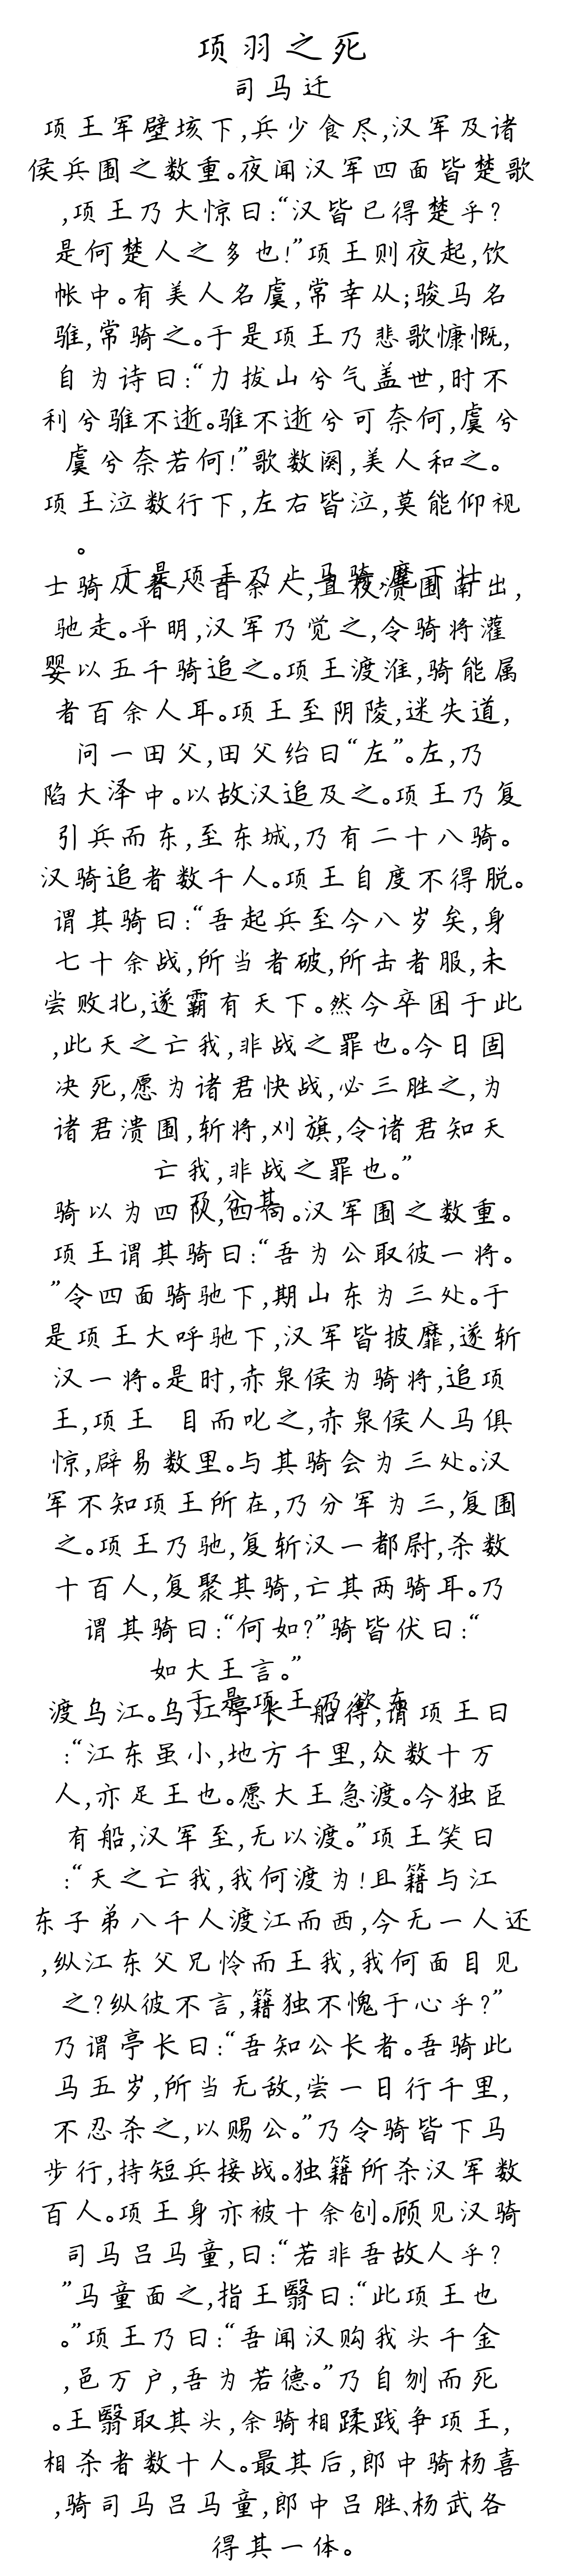 项羽之死
司马迁
项王军壁垓下,兵少食尽,汉军及诸
侯兵围之数重。夜闻汉军四面皆楚歌
,项王乃大惊曰:“汉皆已得楚乎?
是何楚人之多也!”项王则夜起,饮
帐中。有美人名虞,常幸从;骏马名
骓,常骑之。于是项王乃悲歌慷慨,
自为诗曰:“力拔山兮气盖世,时不
利兮骓不逝。骓不逝兮可奈何,虞兮
虞兮奈若何!”歌数阕,美人和之。
项王泣数行下,左右皆泣,莫能仰视
。
于是项王乃上马骑,麾下壮
士骑从者八百余人,直夜溃围南出,
驰走。平明,汉军乃觉之,令骑将灌
婴以五千骑追之。项王渡淮,骑能属
者百余人耳。项王至阴陵,迷失道,
问一田父,田父绐曰“左”。左,乃
陷大泽中。以故汉追及之。项王乃复
引兵而东,至东城,乃有二十八骑。
汉骑追者数千人。项王自度不得脱。
谓其骑曰:“吾起兵至今八岁矣,身
七十余战,所当者破,所击者服,未
尝败北,遂霸有天下。然今卒困于此
,此天之亡我,非战之罪也。今日固
决死,愿为诸君快战,必三胜之,为
诸君溃围,斩将,刈旗,令诸君知天
亡我,非战之罪也。”
乃分其
骑以为四队,四向。汉军围之数重。
项王谓其骑曰:“吾为公取彼一将。
”令四面骑驰下,期山东为三处。于
是项王大呼驰下,汉军皆披靡,遂斩
汉一将。是时,赤泉侯为骑将,追项
王,项王 目而叱之,赤泉侯人马俱
惊,辟易数里。与其骑会为三处。汉
军不知项王所在,乃分军为三,复围
之。项王乃驰,复斩汉一都尉,杀数
十百人,复聚其骑,亡其两骑耳。乃
谓其骑曰:“何如?”骑皆伏曰:“
如大王言。”
于是项王乃欲东
渡乌江。乌江亭长 船待,谓项王曰
:“江东虽小,地方千里,众数十万
人,亦足王也。愿大王急渡。今独臣
有船,汉军至,无以渡。”项王笑曰
:“天之亡我,我何渡为!且籍与江
东子弟八千人渡江而西,今无一人还
,纵江东父兄怜而王我,我何面目见
之?纵彼不言,籍独不愧于心乎?”
乃谓亭长曰:“吾知公长者。吾骑此
马五岁,所当无敌,尝一日行千里,
不忍杀之,以赐公。”乃令骑皆下马
步行,持短兵接战。独籍所杀汉军数
百人。项王身亦被十余创。顾见汉骑
司马吕马童,曰:“若非吾故人乎?
”马童面之,指王翳曰:“此项王也
。”项王乃曰:“吾闻汉购我头千金
,邑万户,吾为若德。”乃自刎而死
。王翳取其头,余骑相蹂践争项王,
相杀者数十人。最其后,郎中骑杨喜
,骑司马吕马童,郎中吕胜、杨武各
得其一体。